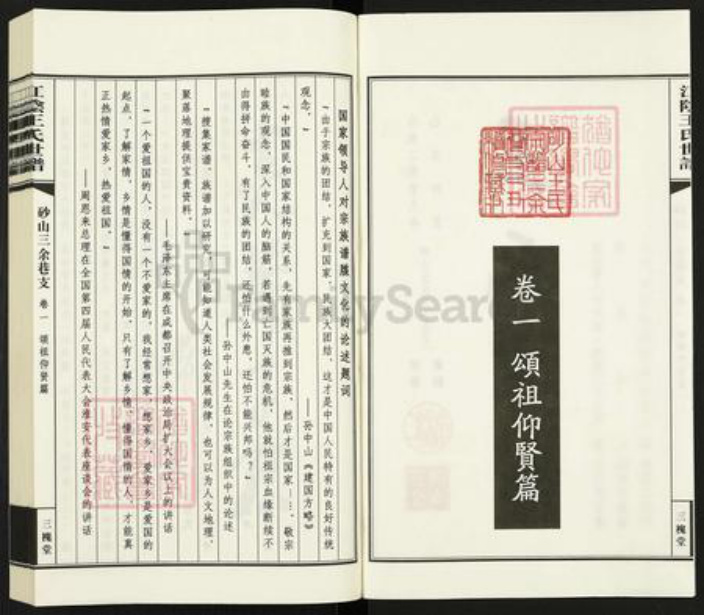 江陰王氏世譜
三槐堂
卷一 頌祖仰賢篇
国家领导人对宗族谱牒文化的论述题词
“由于宗族的团结，扩充到国家、民族大团结，这才是中国人民特有的良好传统
观念。”
——孙中山《建国方略》
“中国国民和国家结构的关系，先有家族再推到宗族，然后才是国家……。敬宗
睦族的观念，深入中国人的脑筋，若遇到亡国灭族的危机，他就怕祖宗血缘断续不
由得拼命奋斗，有了民族的团结，还怕什么外患，还怕不能兴邦吗？”
——孙中山先生在论宗族组织中的论述
“搜集家谱、族谱加以研究，可能知道人类社会发展规律，也可以为人文地理、
聚落地理提供宝贵资料。”
——毛泽东主席在成都召开中央政治局扩大会议上的讲话
“一个爱祖国的人，没有一个不爱家的。我经常想家、想家乡，爱家乡是爱国的
起点，了解家情、乡情是懂得国情的开始，只有了解乡情、懂得国情的人，才能真
正热情爱家乡，热爱祖国。”
——周恩来总理在全国第四届人民代表大会淮安代表座谈会的讲话
江陰王氏世譜
砂山三余巷支
卷一 頌祖仰賢篇
三槐堂
FamilySearch